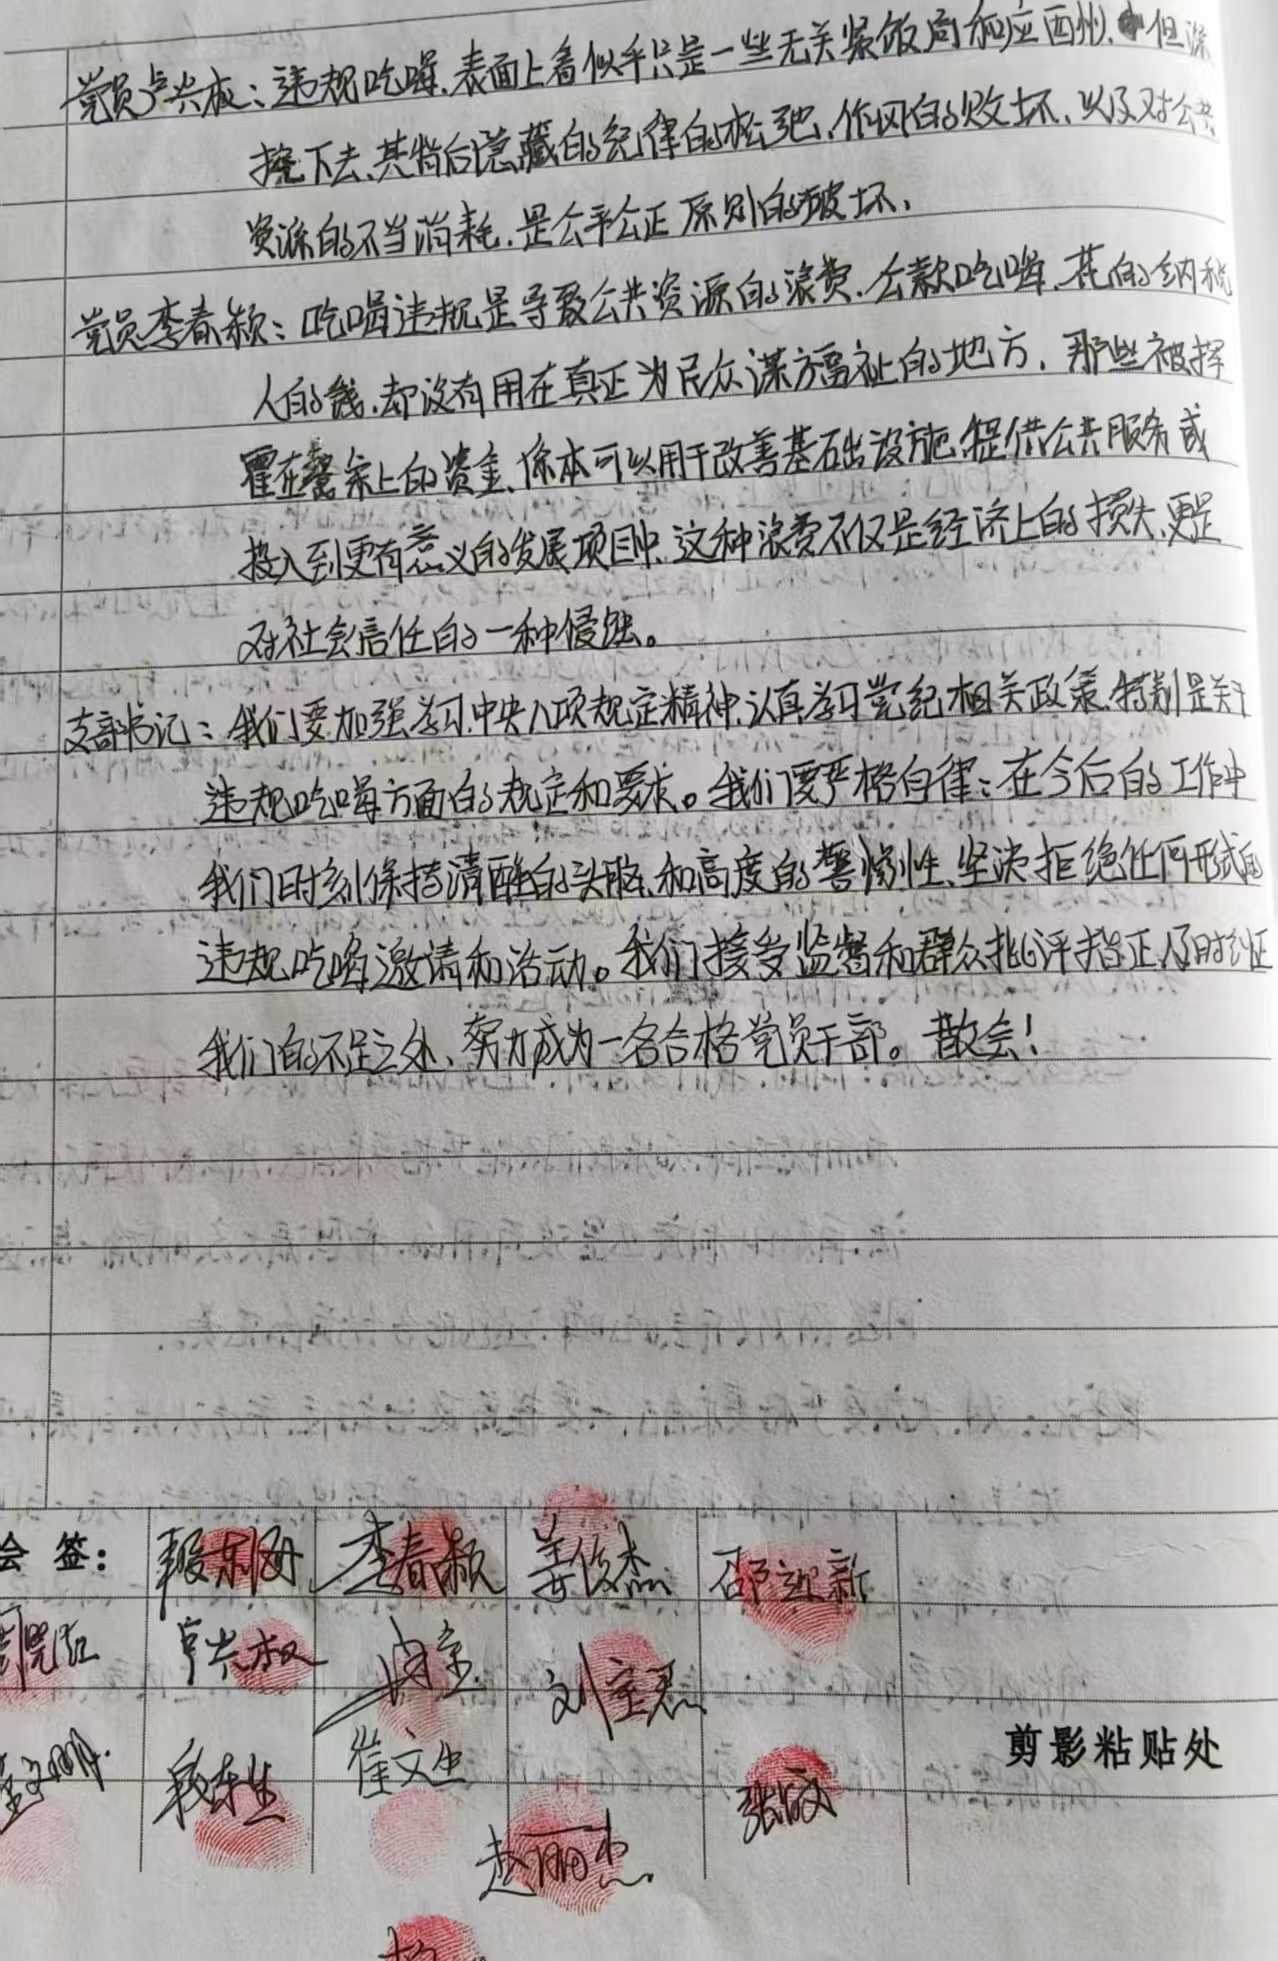 党员卢兴板：违规吃喝、表面上看似乎只是一些无关紧饭局和应酉州、但深
挖下去、其背后隐藏的纪律的松弛、作风的败坏、以及对公共
资源的不当消耗、是公平公正原则的破坏、
党员李春颖：吃喝违规是导致公共资源的浪费、公款吃喝、花的纳税
人的钱、却没有用在真正为民众谋福祉的地方、那些被挥
霍在餐桌上的资金、原本可以用于改善基础设施、提供公共服务或
投入到更有意义的发展项目中、这种浪费不仅是经济上的损失、更是
对社会信任的一种侵蚀。
支部书记：我们要加强学习中央八项规定精神、认真学习党纪相关政策、特别是关于
违规吃喝方面的规定和要求。我们要严格自律：在今后的工作中
我们时刻保持清醒的头脑、和高度的警惕性、坚决拒绝任何形式的
违规吃喝邀请和活动。我们接受监督和群众批评指正、及时纠正
我们的不足之处、努力成为一名合格党员干部。散会！
会 签： 李春颖 姜俊杰 邵迎新
刘宝君
剪影粘贴处
段东生 崔文生